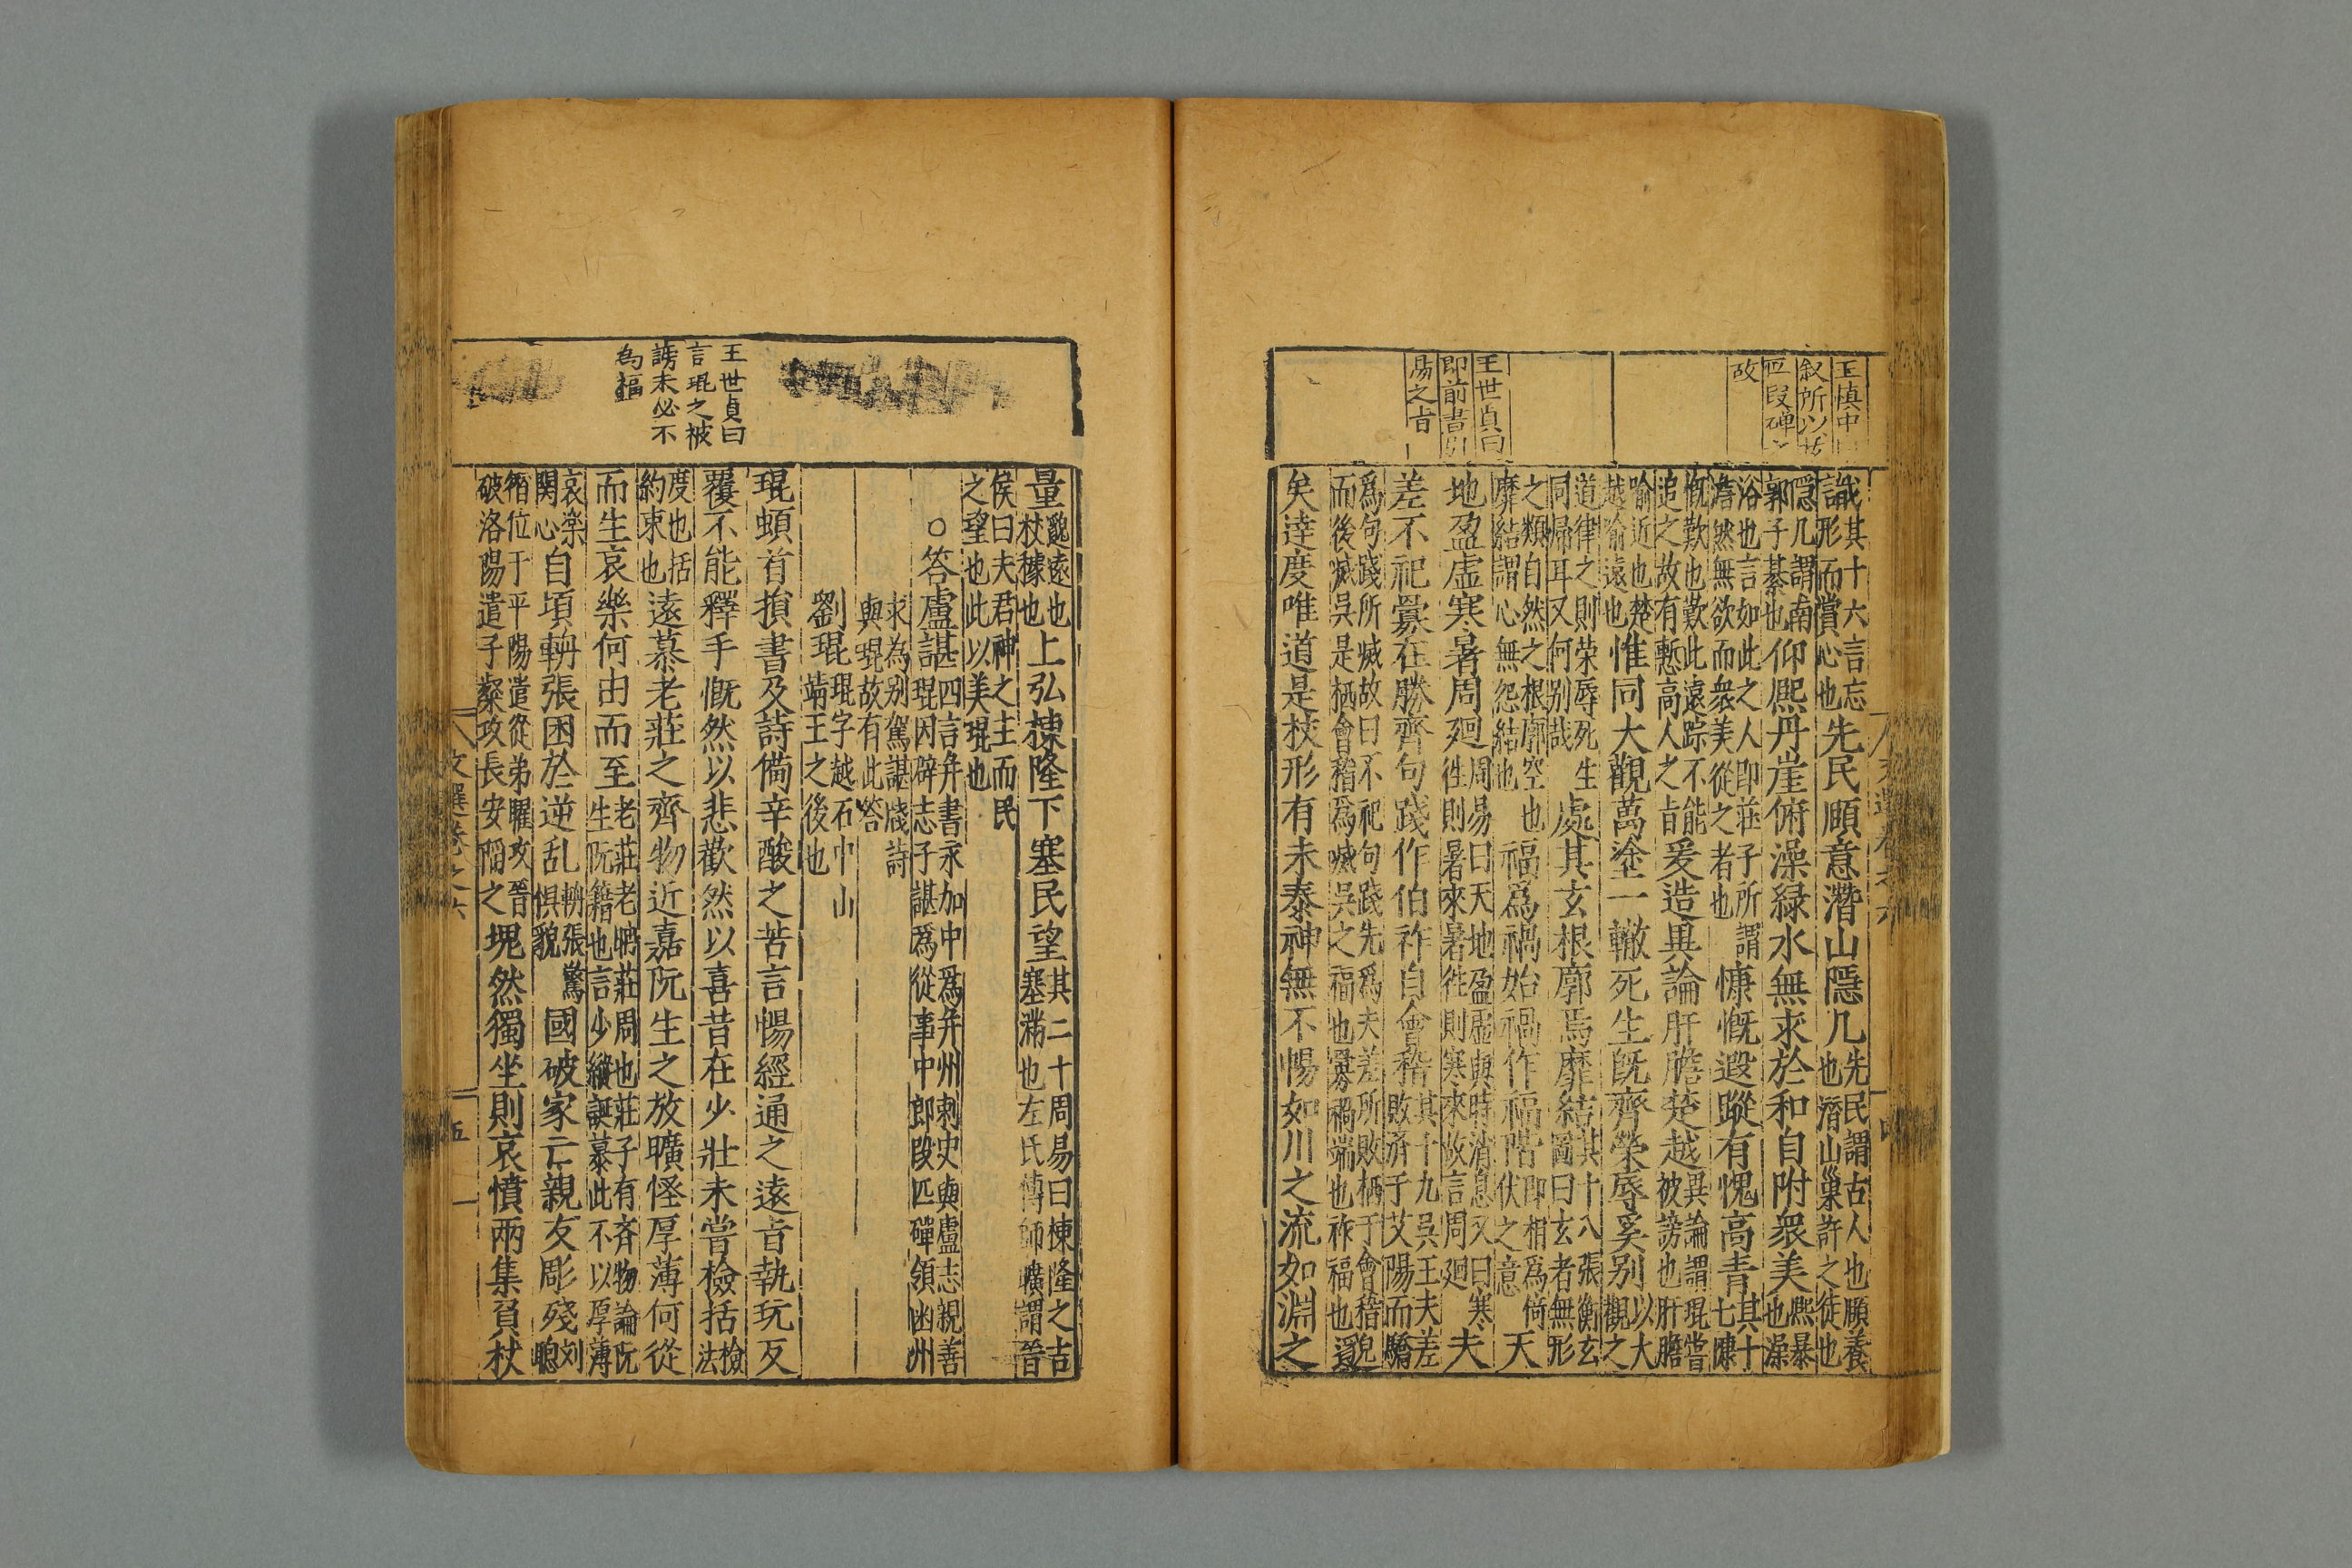 王慎中
叙所以
匹段磾
故
王世貞曰
即前書
昜之㫖
識其十六言忘
形而賞心也先民願意潛山隱几先民謂古人也願養
也潛山巢許之徒也
隱几謂南
郭子綦也仰熈丹崖俯澡緑水無求於和自附衆美熈暴
也澡
浴也言如此之人即莊子所謂
澹然無欲而衆美從之者也慷慨遐蹤有愧高音其十
七慷
慨歎也歎此遠踪不能
追之故有慙高人之㫖爰造異論肝膽楚越異論謂琨嘗
被謗也肝膽
喻近也楚
越喻遠也惟同大觀萬塗一轍死生旣齊榮辱奚别以大
觀之
道律之則荣辱死生
同歸耳又何别哉處其玄根廓焉靡結其十八張衡玄
圖曰玄者無形
之類自然之根廓空也
靡結謂心無怨結也福爲禍始禍作福階即相爲倚
伏之意天
地盈虛寒暑周廻周易曰天地盈虛與時消息又曰寒
徃則暑來暑徃則寒來故言周廻夫
差不祀釁在勝齊句踐作伯祚自會稽其十九吳王夫差
敗濟于艾陽而驕
爲句踐所滅故曰不祀句踐先爲夫差所敗栖于會稽
而後滅吳是栖會稽爲滅吳之福也釁禍端也祚福也邈
矣達度唯道是杖形有未泰神無不暢如川之流如淵之
文選卷之六
四
量邈遠也
杖㯫也上弘棟隆下塞民望其二十周易曰棟隆之吉
塞滿也左氏傳師曠謂晉
侯曰夫君神之主而民
之望也此以美琨也
○答盧諶四言并書永加中爲并州刺史與盧志親善
琨因辟志子諶爲從事中郎段匹磾領幽州
求為别駕諶牋詩
與琨故有此答
劉琨琨字越石中山
靖王之後也
琨頓首損書及詩備辛酸之苦言暢經通之遠音執玩反
覆不能釋手慨然以悲歡然以喜昔在少壯未嘗檢括檢
法
度也括
約束也遠慕老莊之齊物近嘉阮生之放曠怪厚薄何從
而生哀樂何由而至老莊老聃莊周也莊子有斉物論阮
生阮籍也言少續誕慕此不以厚薄
哀樂
関心自頃輈張困於逆乱輈張驚
惧貌國破家亡親友彫殘刘
聰
僭位于平陽遣從弟曜攻晉
破洛陽遣子粲攻長安䧟之塊然獨坐則哀憤兩集負杖
文選卷之六
五
王世貞曰
言琨之被
謗未必不
為福